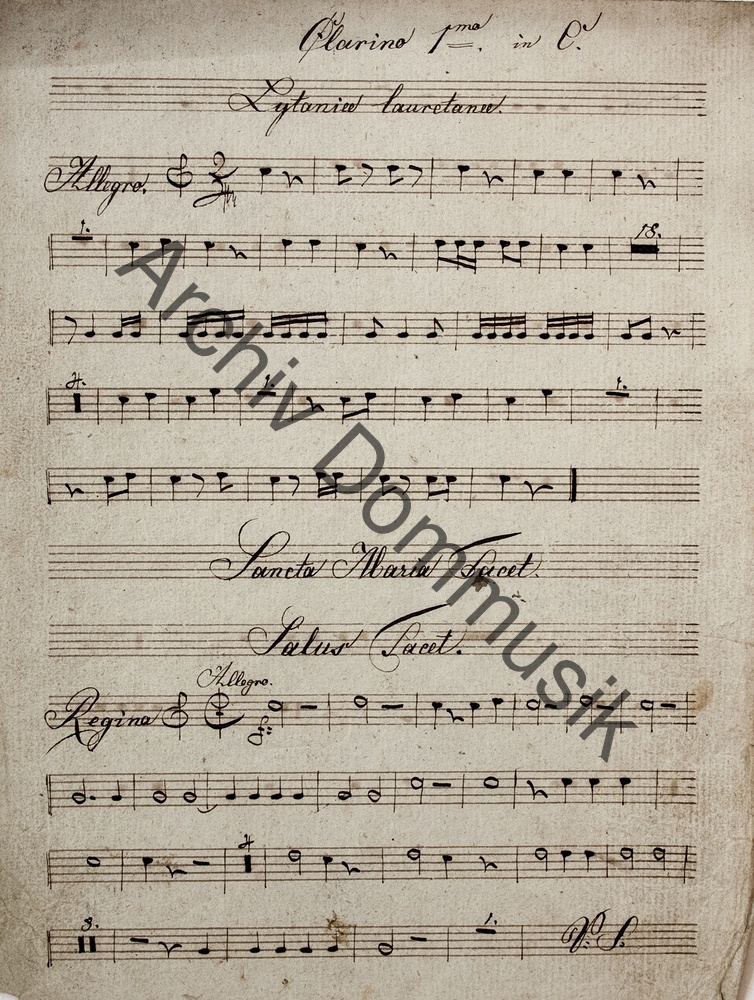 Clarino 1mo. in C.
Lytaniae lauretanae.
Allegro. 2/4
1. 18.
4. 1. 1.
Sancta Maria Tacet.
Salus Tacet.
Allegro.
Regina f:
4
8. 1. V: S.
Archiv Dommusik